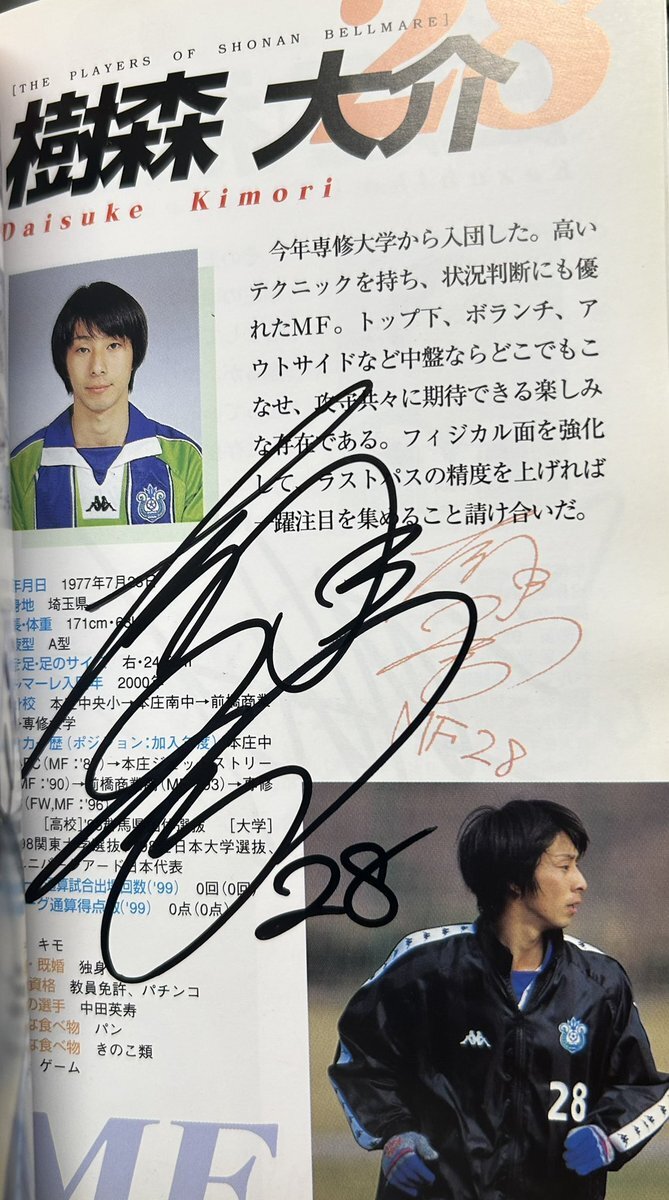 28
[THE PLAYERS OF SHONAN BELLMARE]
樹森 大介
Daisuke Kimori
今年専修大学から入団した。高い
テクニックを持ち、状況判断にも優
れたMF。トップ下、ボランチ、ア
ウトサイドなど中盤ならどこでもこ
なせ、攻守共々に期待できる楽しみ
な存在である。フィジカル面を強化
して、ラストパスの精度を上げれば
一躍注目を集めること請け合いだ。
年月日 1977年7月
身地 埼玉県
長・体重 171cm・6
液型 A型
き足・足のサイズ 右・24.
ルマーレ入団年 2000年
学校 本庄中央小→本庄南中→前橋商業
専修大学
カー歴(ポジション:加入年度) 本庄中
(MF:'8
MF:'90)→前橋商業 →専修
(FW,MF:'96)
[高校] 群馬県 選抜 [大学]
98関東大学選抜、 日本大学選抜、
ユニバーシアード日本代表
通算試合出場回数('99) 0回(0回)
ーグ通算得点数('99) 0点(0点)
キモ
・既婚 独身
資格 教員免許、パチンコ
の選手 中田英寿
な食べ物 パン
な食べ物 きのこ類
ゲーム
28
MF 28
28
MF